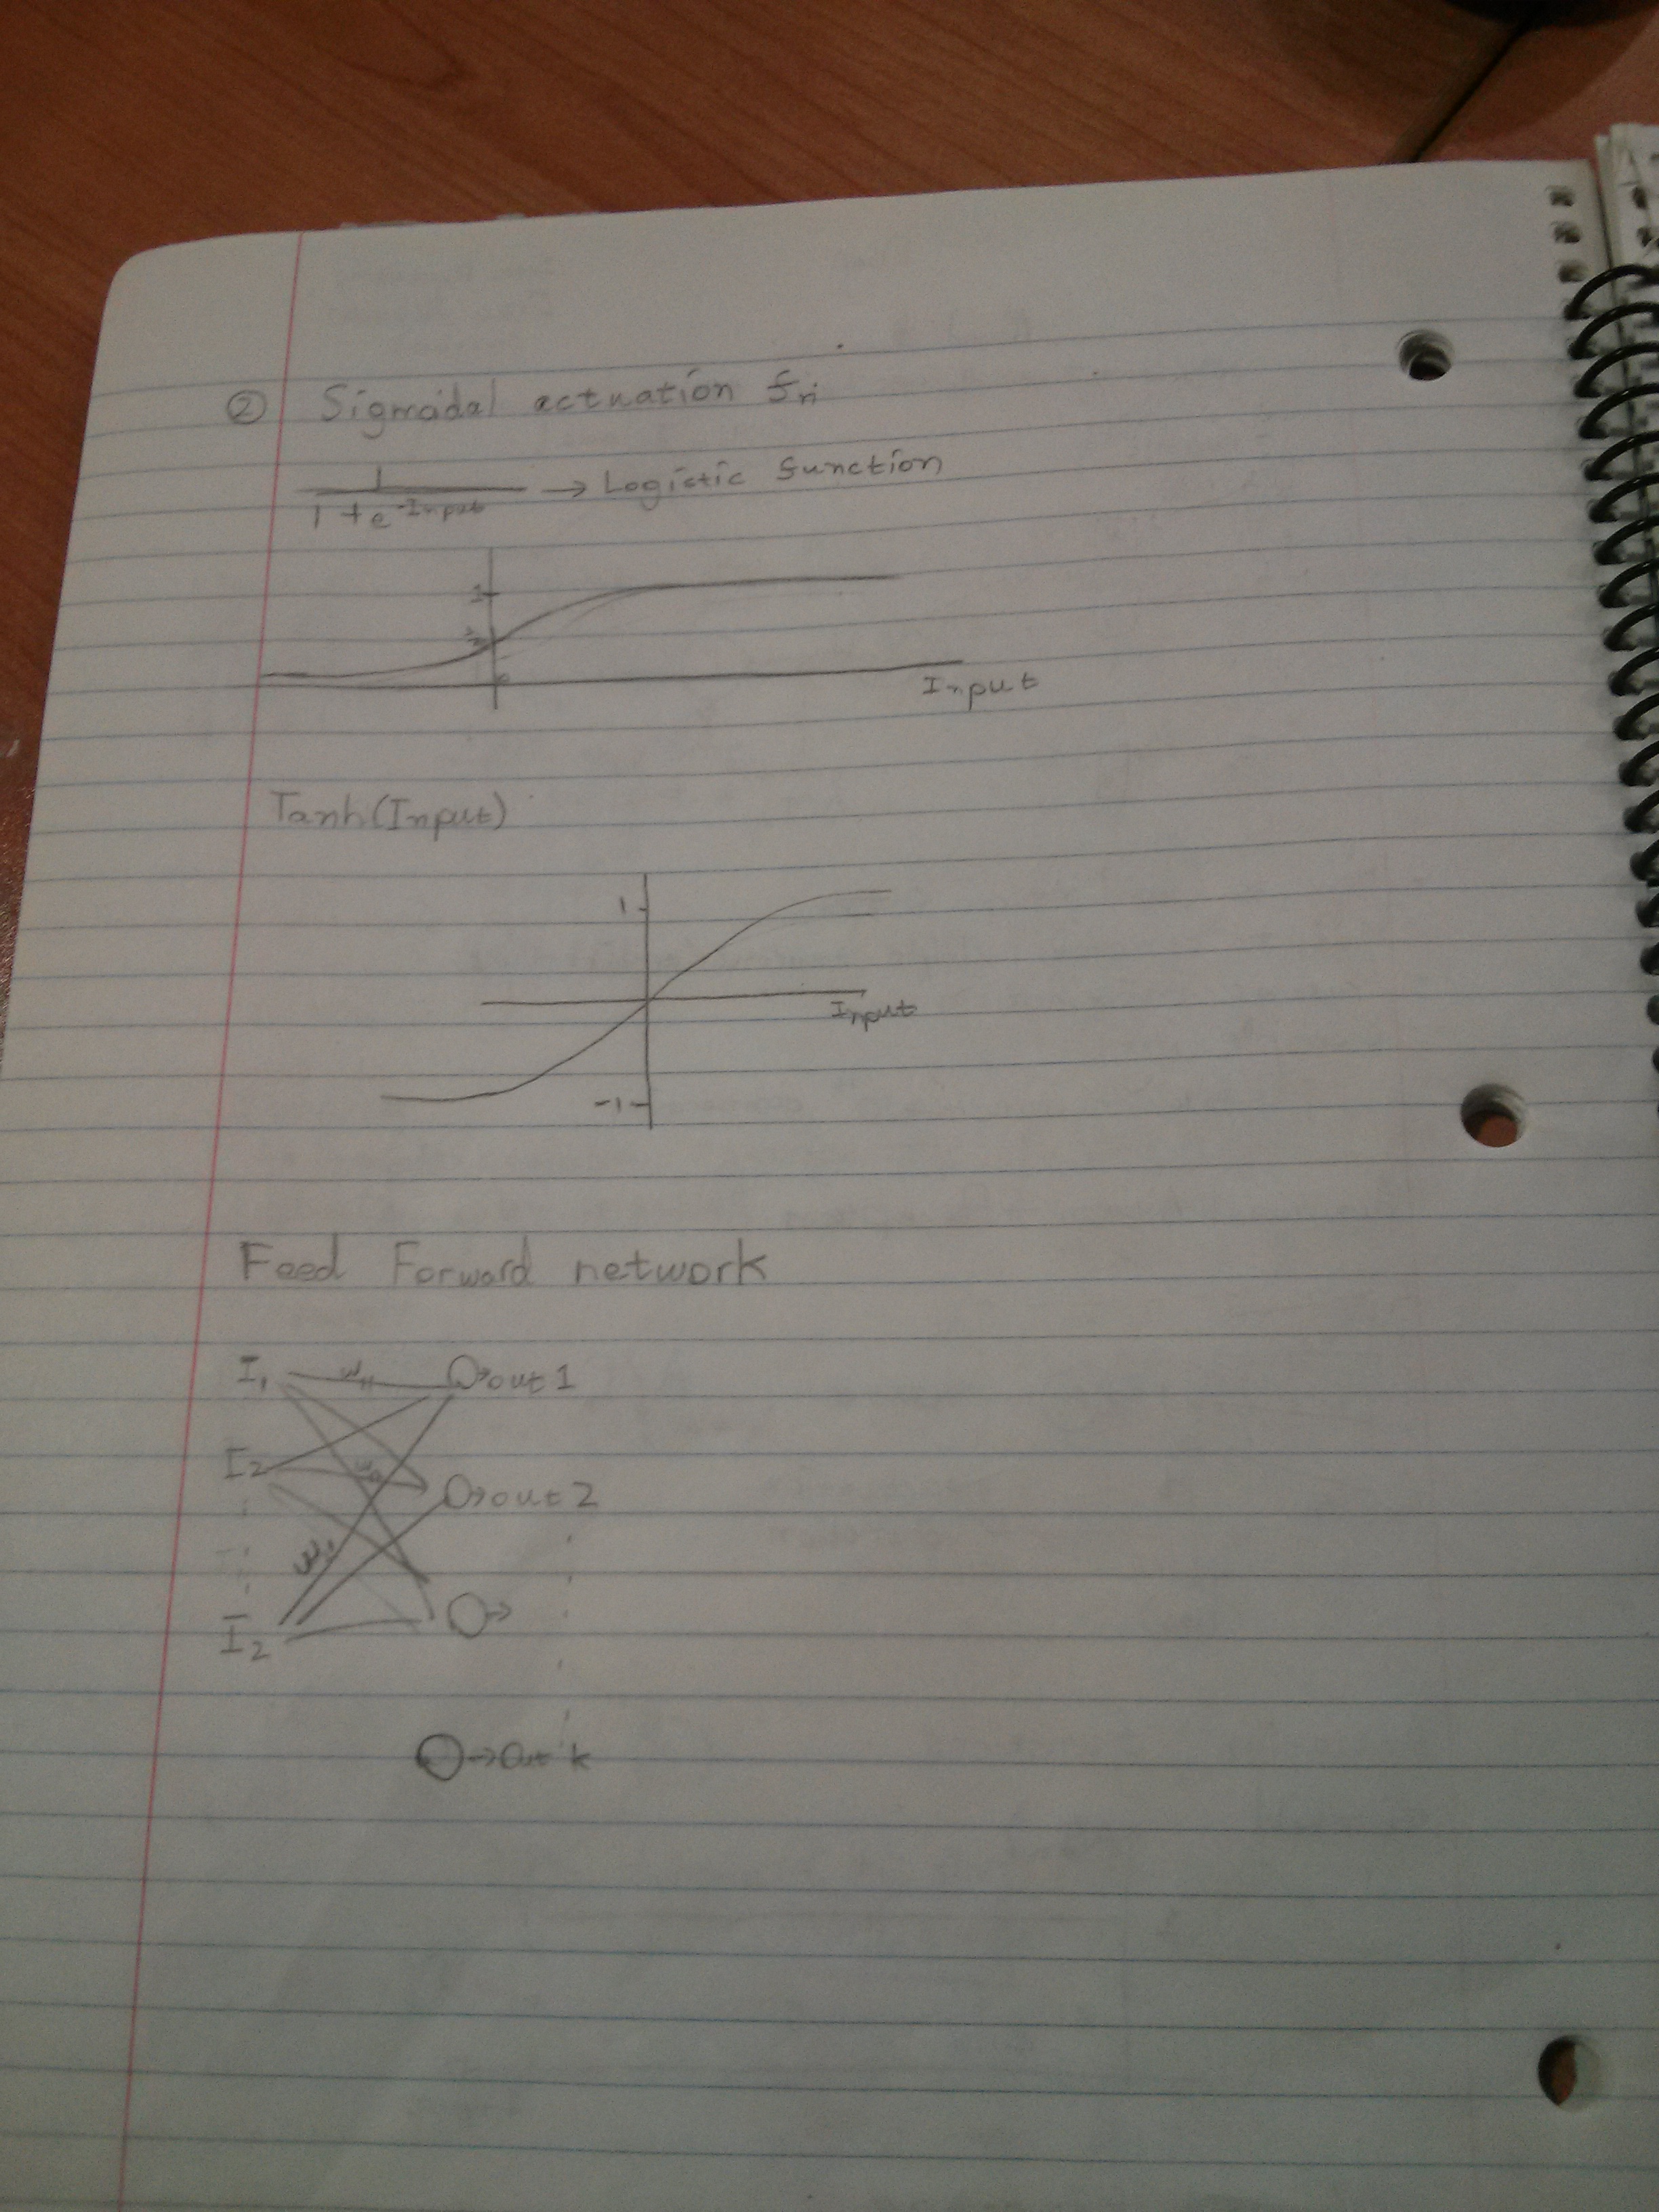 ② Sigmoidal actuation fn
1
1 + e^-Input → Logistic function
1
½
0
Input
Tanh(Input)
1
Input
-1
Feed Forward network
I₁ w₁₁ → out 1
I₂
→ out 2
→
I₂
→ Out k